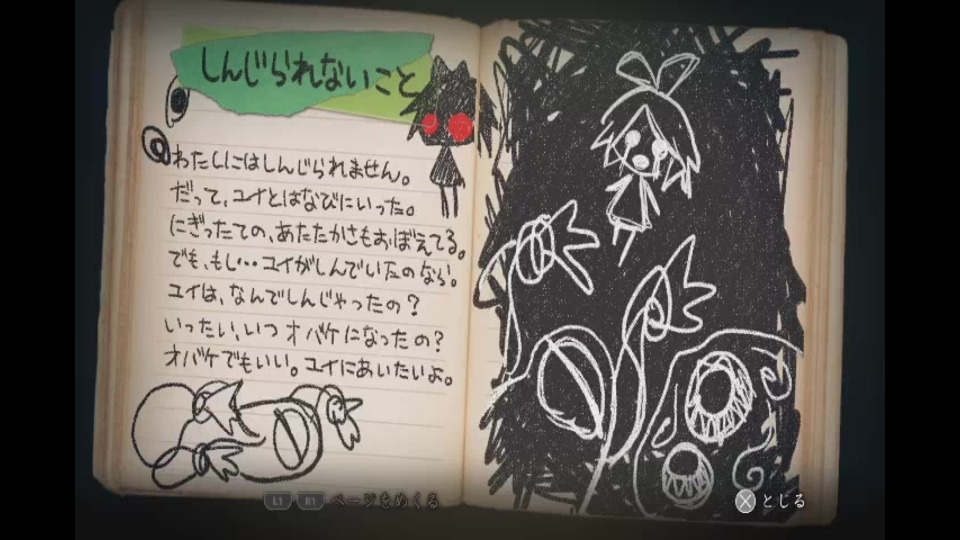 しんじられないこと
わたしにはしんじられません。
だって、ユイとはなびにいった。
にぎったての、あたたかさもおぼえてる。
でも、もし…ユイがしんでいたのなら。
ユイは、なんでしんじゃったの?
いったい、いつオバケになったの?
オバケでもいい。ユイにあいたいよ。
L1 R1 ページをめくる
とじる